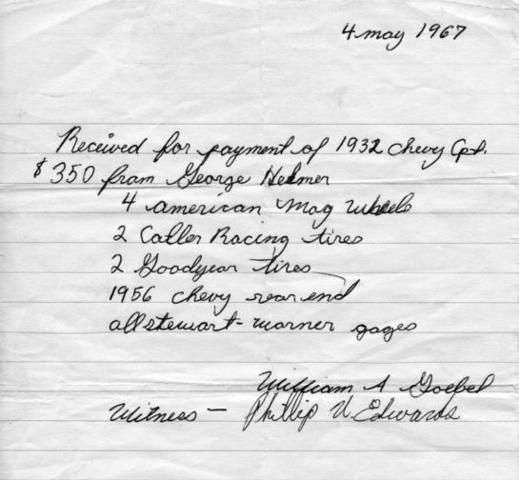 4 may 1967
Received for payment of 1932 chevy Cpt.
$350 from George Helmer
4 american Mag Wheels
2 Catler Racing tires
2 Goodyear tires
1956 chevy rear end
all stewart-warner gages
William A Goebel
Witness - Phillip V Edwards